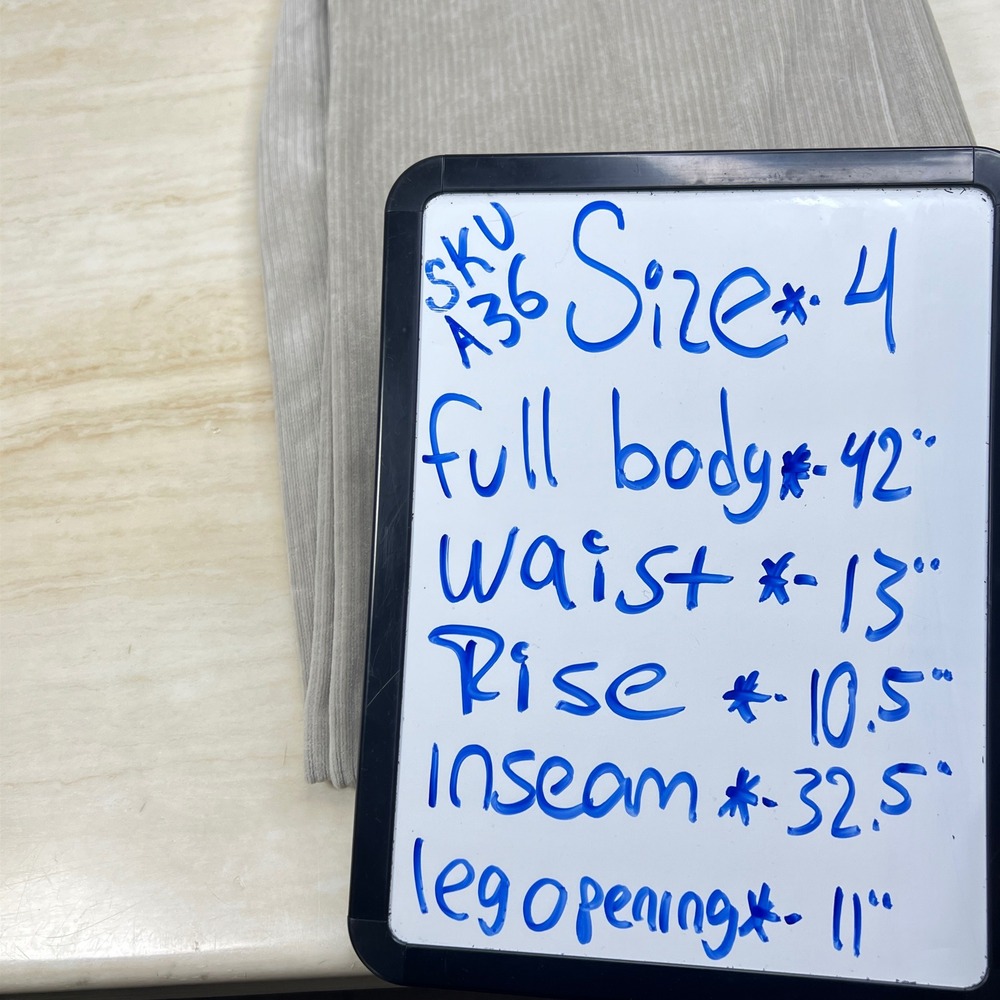 SKU
A36
Size*- 4
full body*- 42"
Waist *- 13"
Rise *- 10.5"
Inseam *- 32.5"
leg opening*- 11"